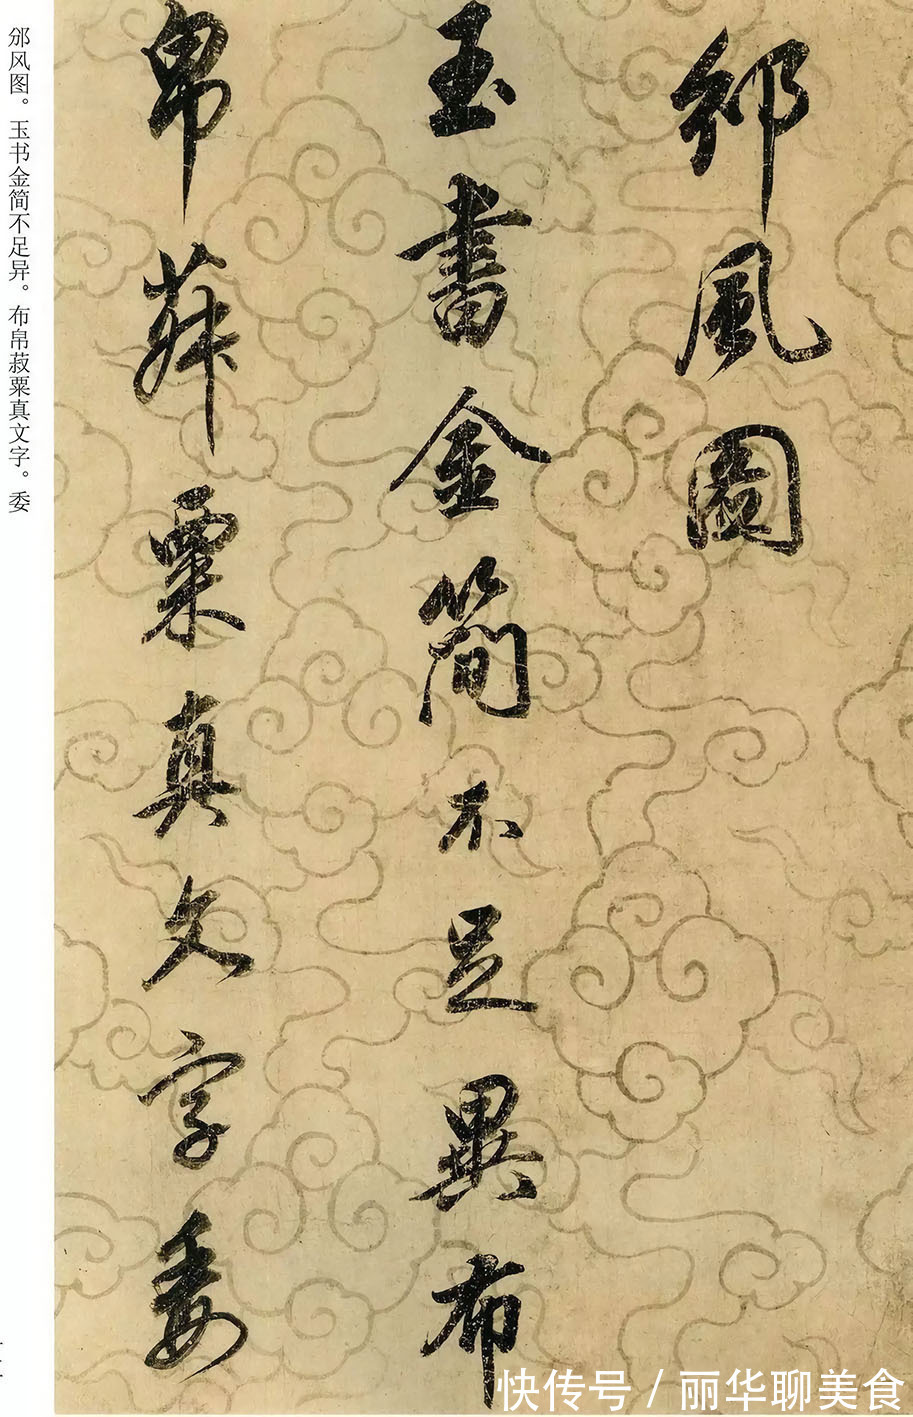 邠風圖
玉書金簡不足異布
帛菽粟真文字委
邠风图。玉书金简不足异。布帛菽粟真文字。委
快传号 / 丽华聊美食